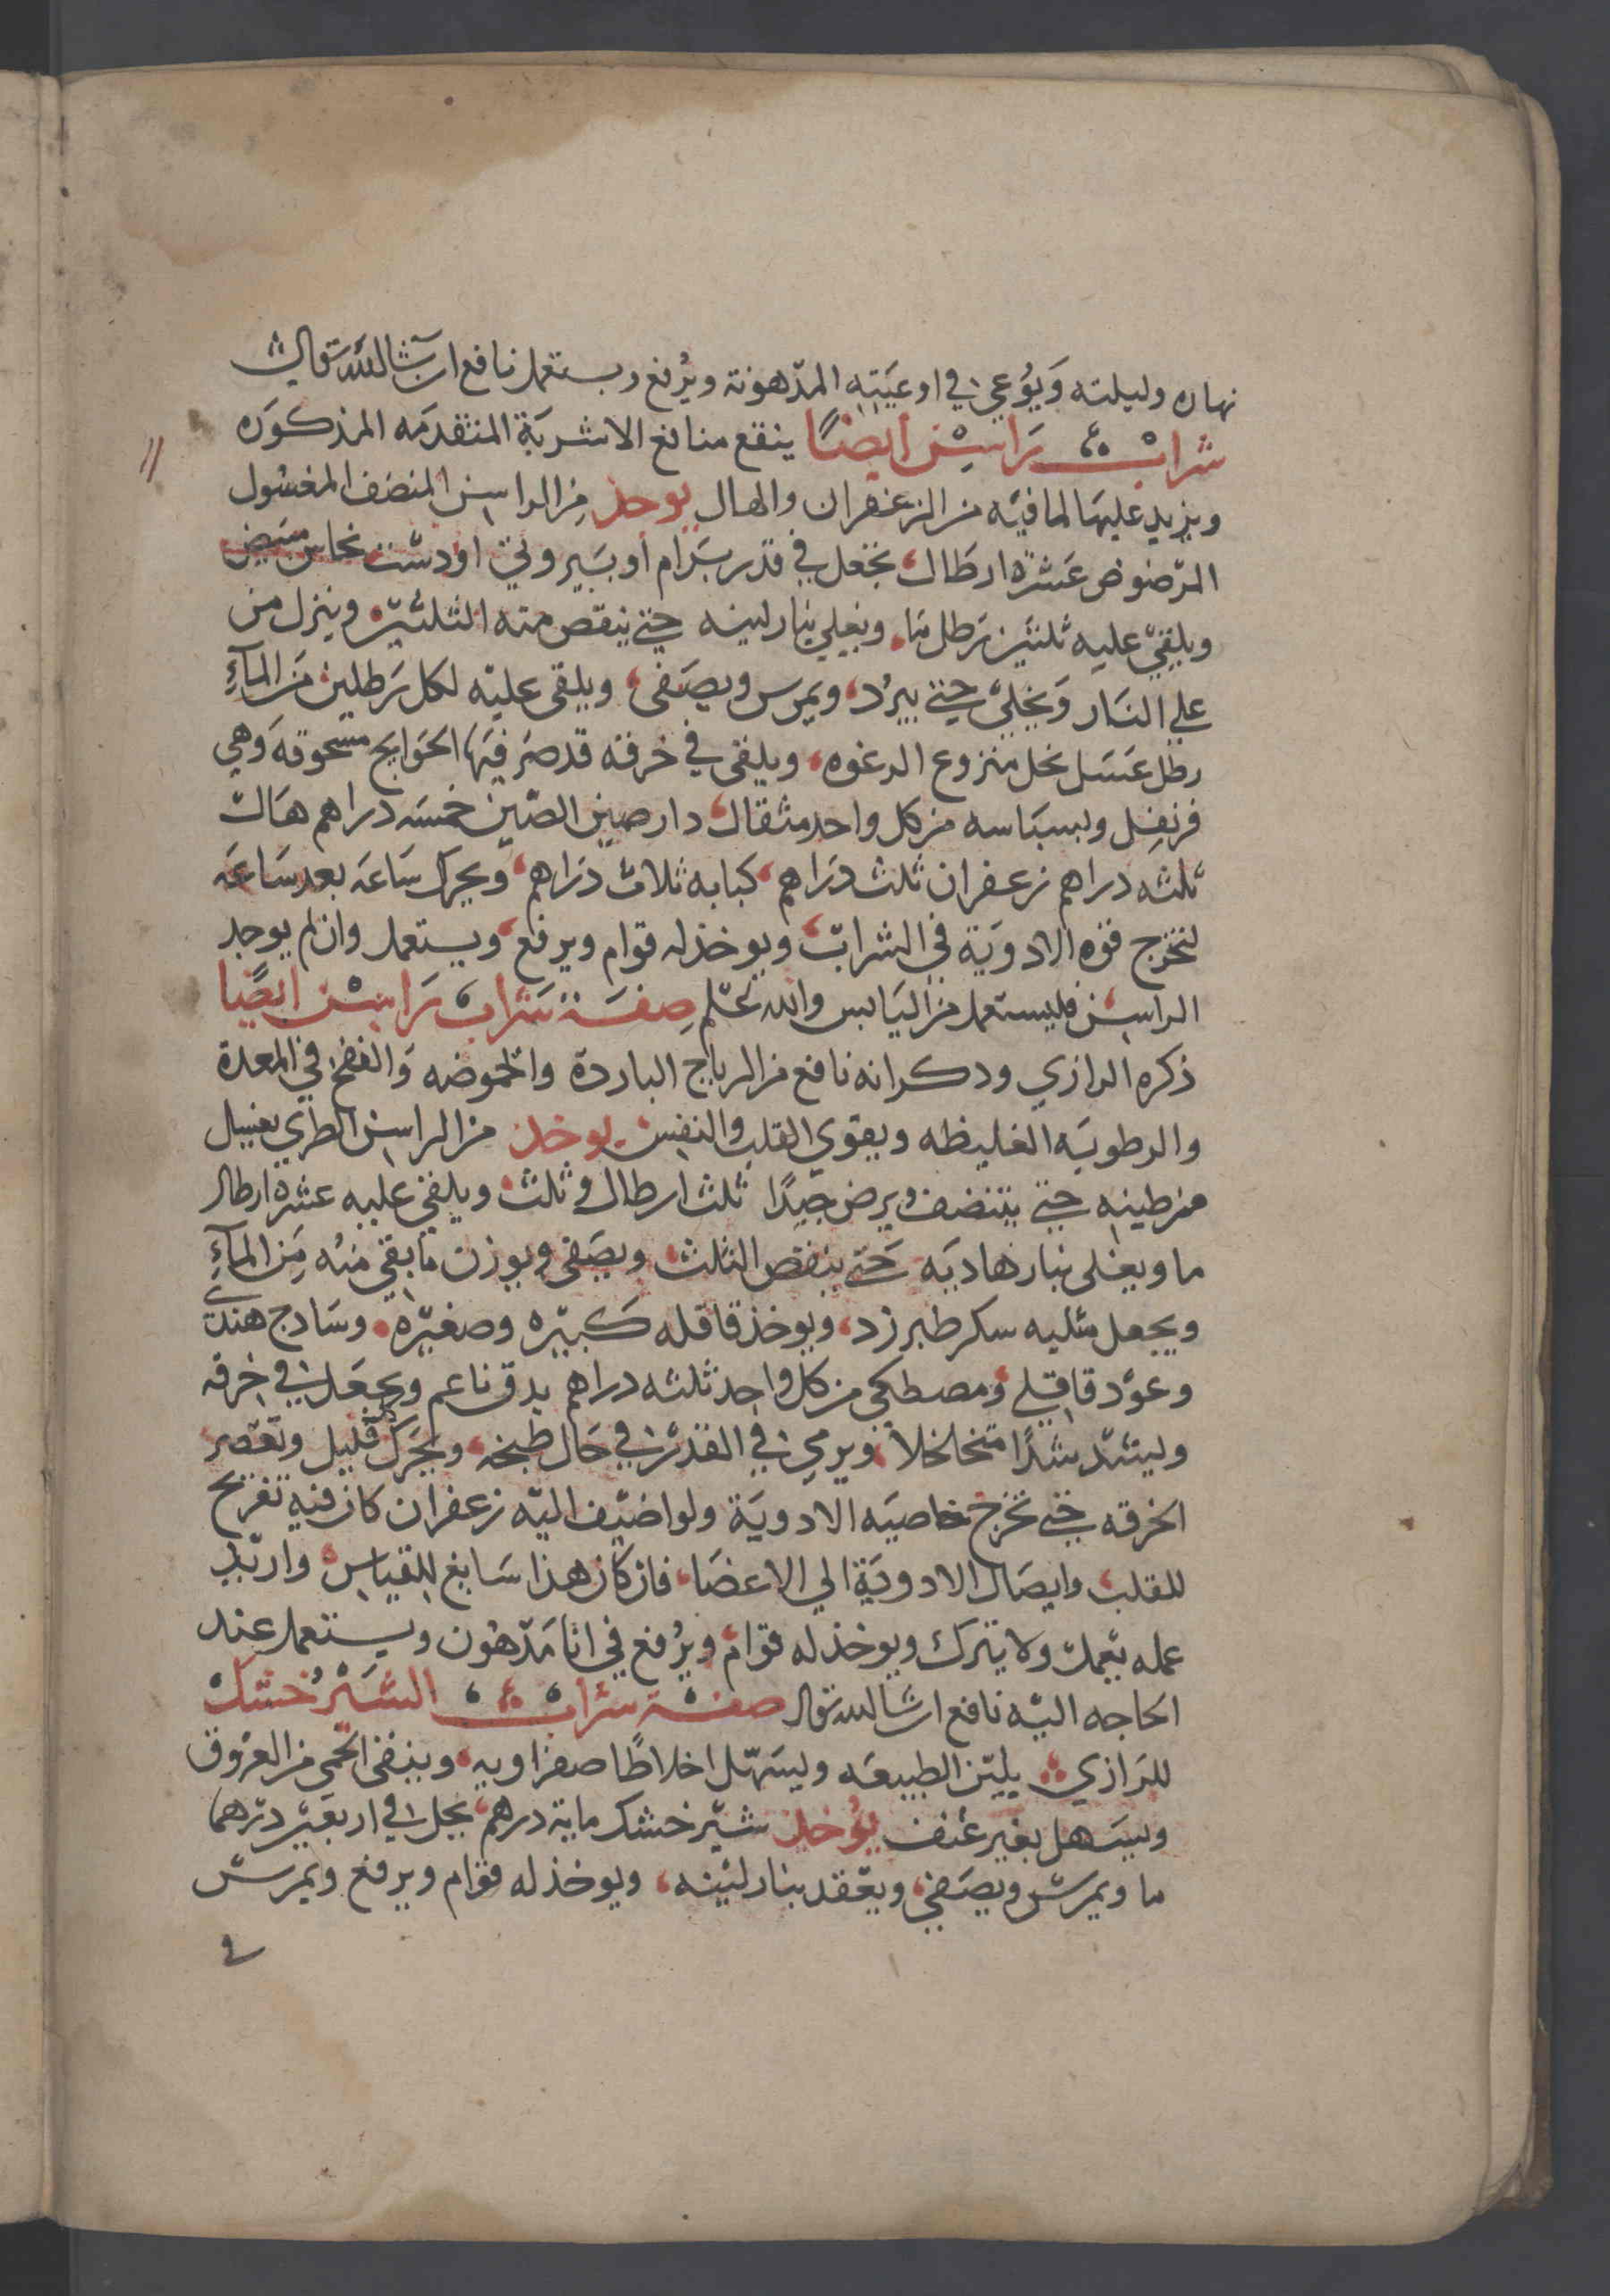 نهاره وليلته ويوعى في اوعيته المدهونة ويرفع ويستعمل نافع ان شا الله تعالى
شراب راسن ايضًا ينفع منافع الاشربة المتقدمه المذكوره
ويزيد عليها لما فيه من الزعفران والهال يوخذ من الراسن المنضف المغسول
المرضوض عشرة ارطال يجعل في قدر برام او بيروتي او دست نحاس مبيض
ويلقى عليه ثلثين رطل ما ويغلي بنار لينه حتى ينقص منه الثلثين وينزل من
على النار ويخلى حتى يبرد ويمرس ويصفى ويلقى عليه لكل رطلين من المآءِ
رطل عسل نحل منزوع الرغوه ويلقى في خرقه قد صر فيها الحوايج مسحوقه وهي
قرنفل وبسباسه من كل واحد مثقال دار صيني الصين خمسه دراهم هال
ثلثه دراهم زعفران ثلث دراهم كبابه ثلاث دراهم ويحرك ساعه بعد ساعه
لتخرج قوه الادوية في الشراب ويوخذ له قوام ويرفع ويستعمل وان لم يوجد
الراسن فليستعمل من اليابس والله اعلم صفة شراب راسن ايضًا
ذكره الرازي ودكر انه نافع من الرياح الباردة والحموضه والنفخ في المعدة
والرطوبه الغليظه ويقوي القلب والنفس يوخذ من الراسن الطري يغسل
من طينه حتى يتنضف ويرض جيدًا ثلث ارطال وثلث ويلقى عليه عشره ارطال
ما ويغلى بنار هاديه حتى ينقص الثلث ويصفى ويوزن ما بقي منه من المآءِ
ويجعل مثليه سكر طبرزد ويوخذ قاقله كبيره وصغيره وسادج هندى
وعود قاقلي ومصطكى من كل واحد ثلثه دراهم يدق ناعم ويجعل في خرقه
وليشد شدًا متخلخلاً ويرمى في القدر في حال طبخه ويحرك قليل وتعصر
الخرقه حتى تخرج خاصيه الادوية ولو اضيف اليه زعفران كان فيه تفريح
للقلب وايصال الادوية الى الاعضا فان كان هذا سايغ للقياس واريد
عمله يعمل ولا يترك ويوخذ له قوام ويرفع في انا مدهون ويستعمل عند
الحاجه اليه نافع ان شا الله تعالى صفة شراب الشير خشك
للرازي يلين الطبيعه ويسهل اخلاطًا صفراويه وينفي الحمى من العروق
ويسهل بغير عنف يوخذ شير خشك ماية درهم يحل في اربعين درهما
ما ويمرس ويصفى ويعقد بنار لينه ويوخذ له قوام ويرفع ويمرس